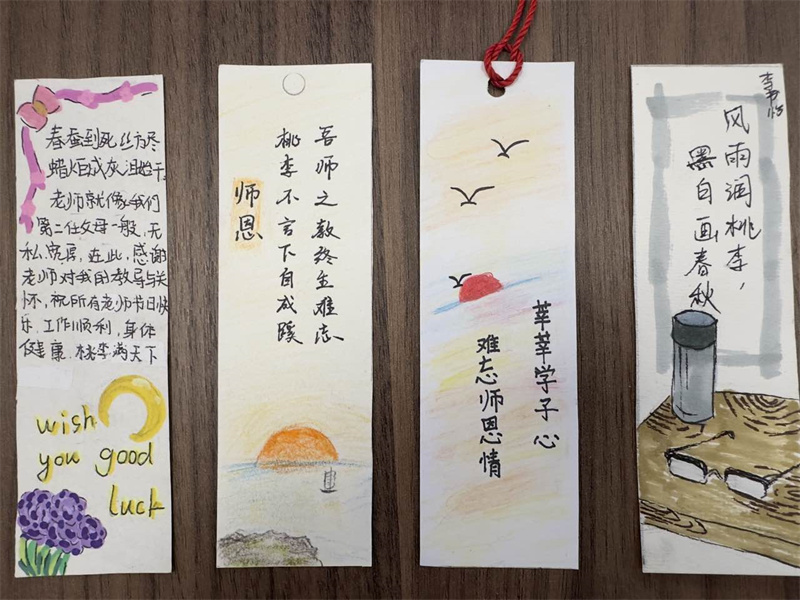 春蚕到死丝方尽
蜡炬成灰泪始干
老师就像我们
第二任父母一般,无
私,宽厚,在此,感谢
老师对我的教导与关
怀,祝所有老师节日快
乐,工作顺利,身体
健康,桃李满天下
wish
you good
luck
吾师之教终生难忘
桃李不言下自成蹊
师恩
莘莘学子心
难忘师恩情
风雨润桃李,
黑白画春秋